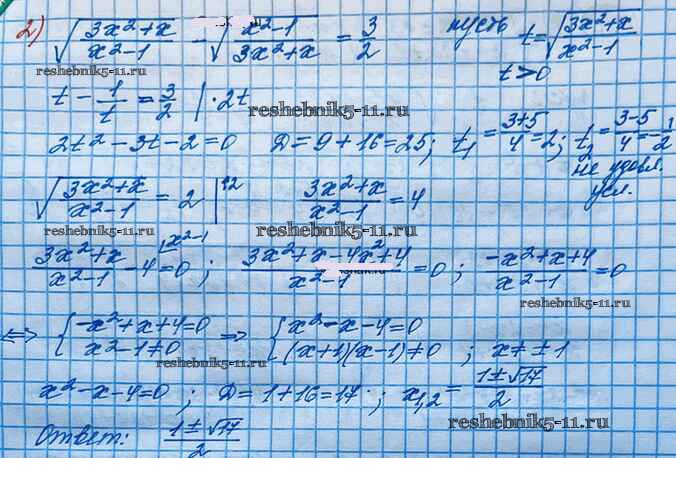 2) √(3x²+x / x²-1) - √(x²-1 / 3x²+x) = 3/2 пусть t = √(3x²+x / x²-1)
t > 0
reshebnik5-11.ru
t - 1/t = 3/2 | ·2t
reshebnik5-11.ru
2t² - 3t - 2 = 0 D = 9 + 16 = 25; t₁ = 3+5/4 = 2; t₂ = 3-5/4 = -1/2
не удовл.
усл.
reshebnik5-11.ru
√(3x²+x / x²-1) = 2 |↑2 3x²+x / x²-1 = 4
reshebnik5-11.ru
3x²+x / x²-1 - 4 = 0 |x²-1 ; 3x²+x-4x²+4 / x²-1 = 0 ; -x²+x+4 / x²-1 = 0
reshebnik5-11.ru
⇔ { -x²+x+4=0 ⇒ { x²-x-4=0
x²-1≠0 (x+1)(x-1)≠0 ; x≠±1
x²-x-4=0 ; D = 1+16 = 17 ; x₁,₂ = 1±√17 / 2
reshebnik5-11.ru
Ответ: 1±√17 / 2